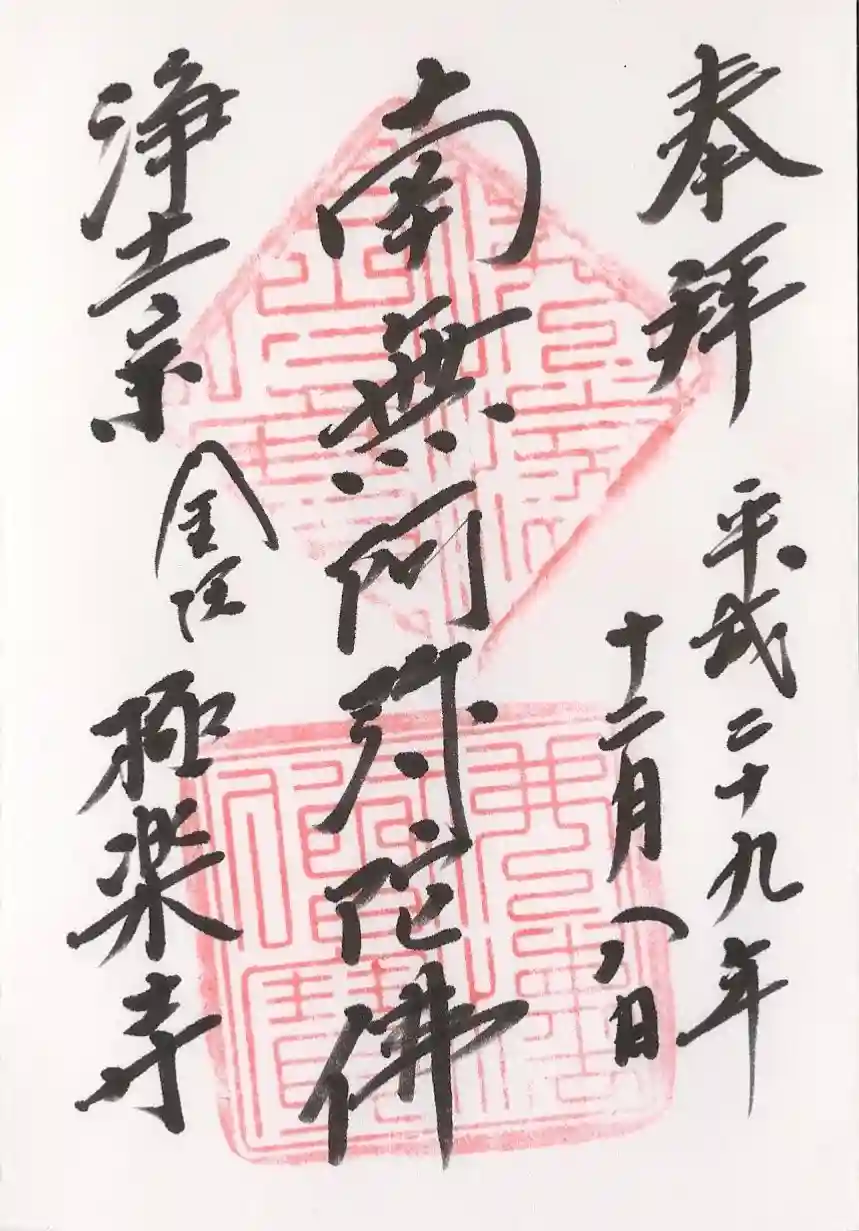 奉拜
平成二十九年
十二月八日
南無阿弥陀佛
浄土宗
極楽寺